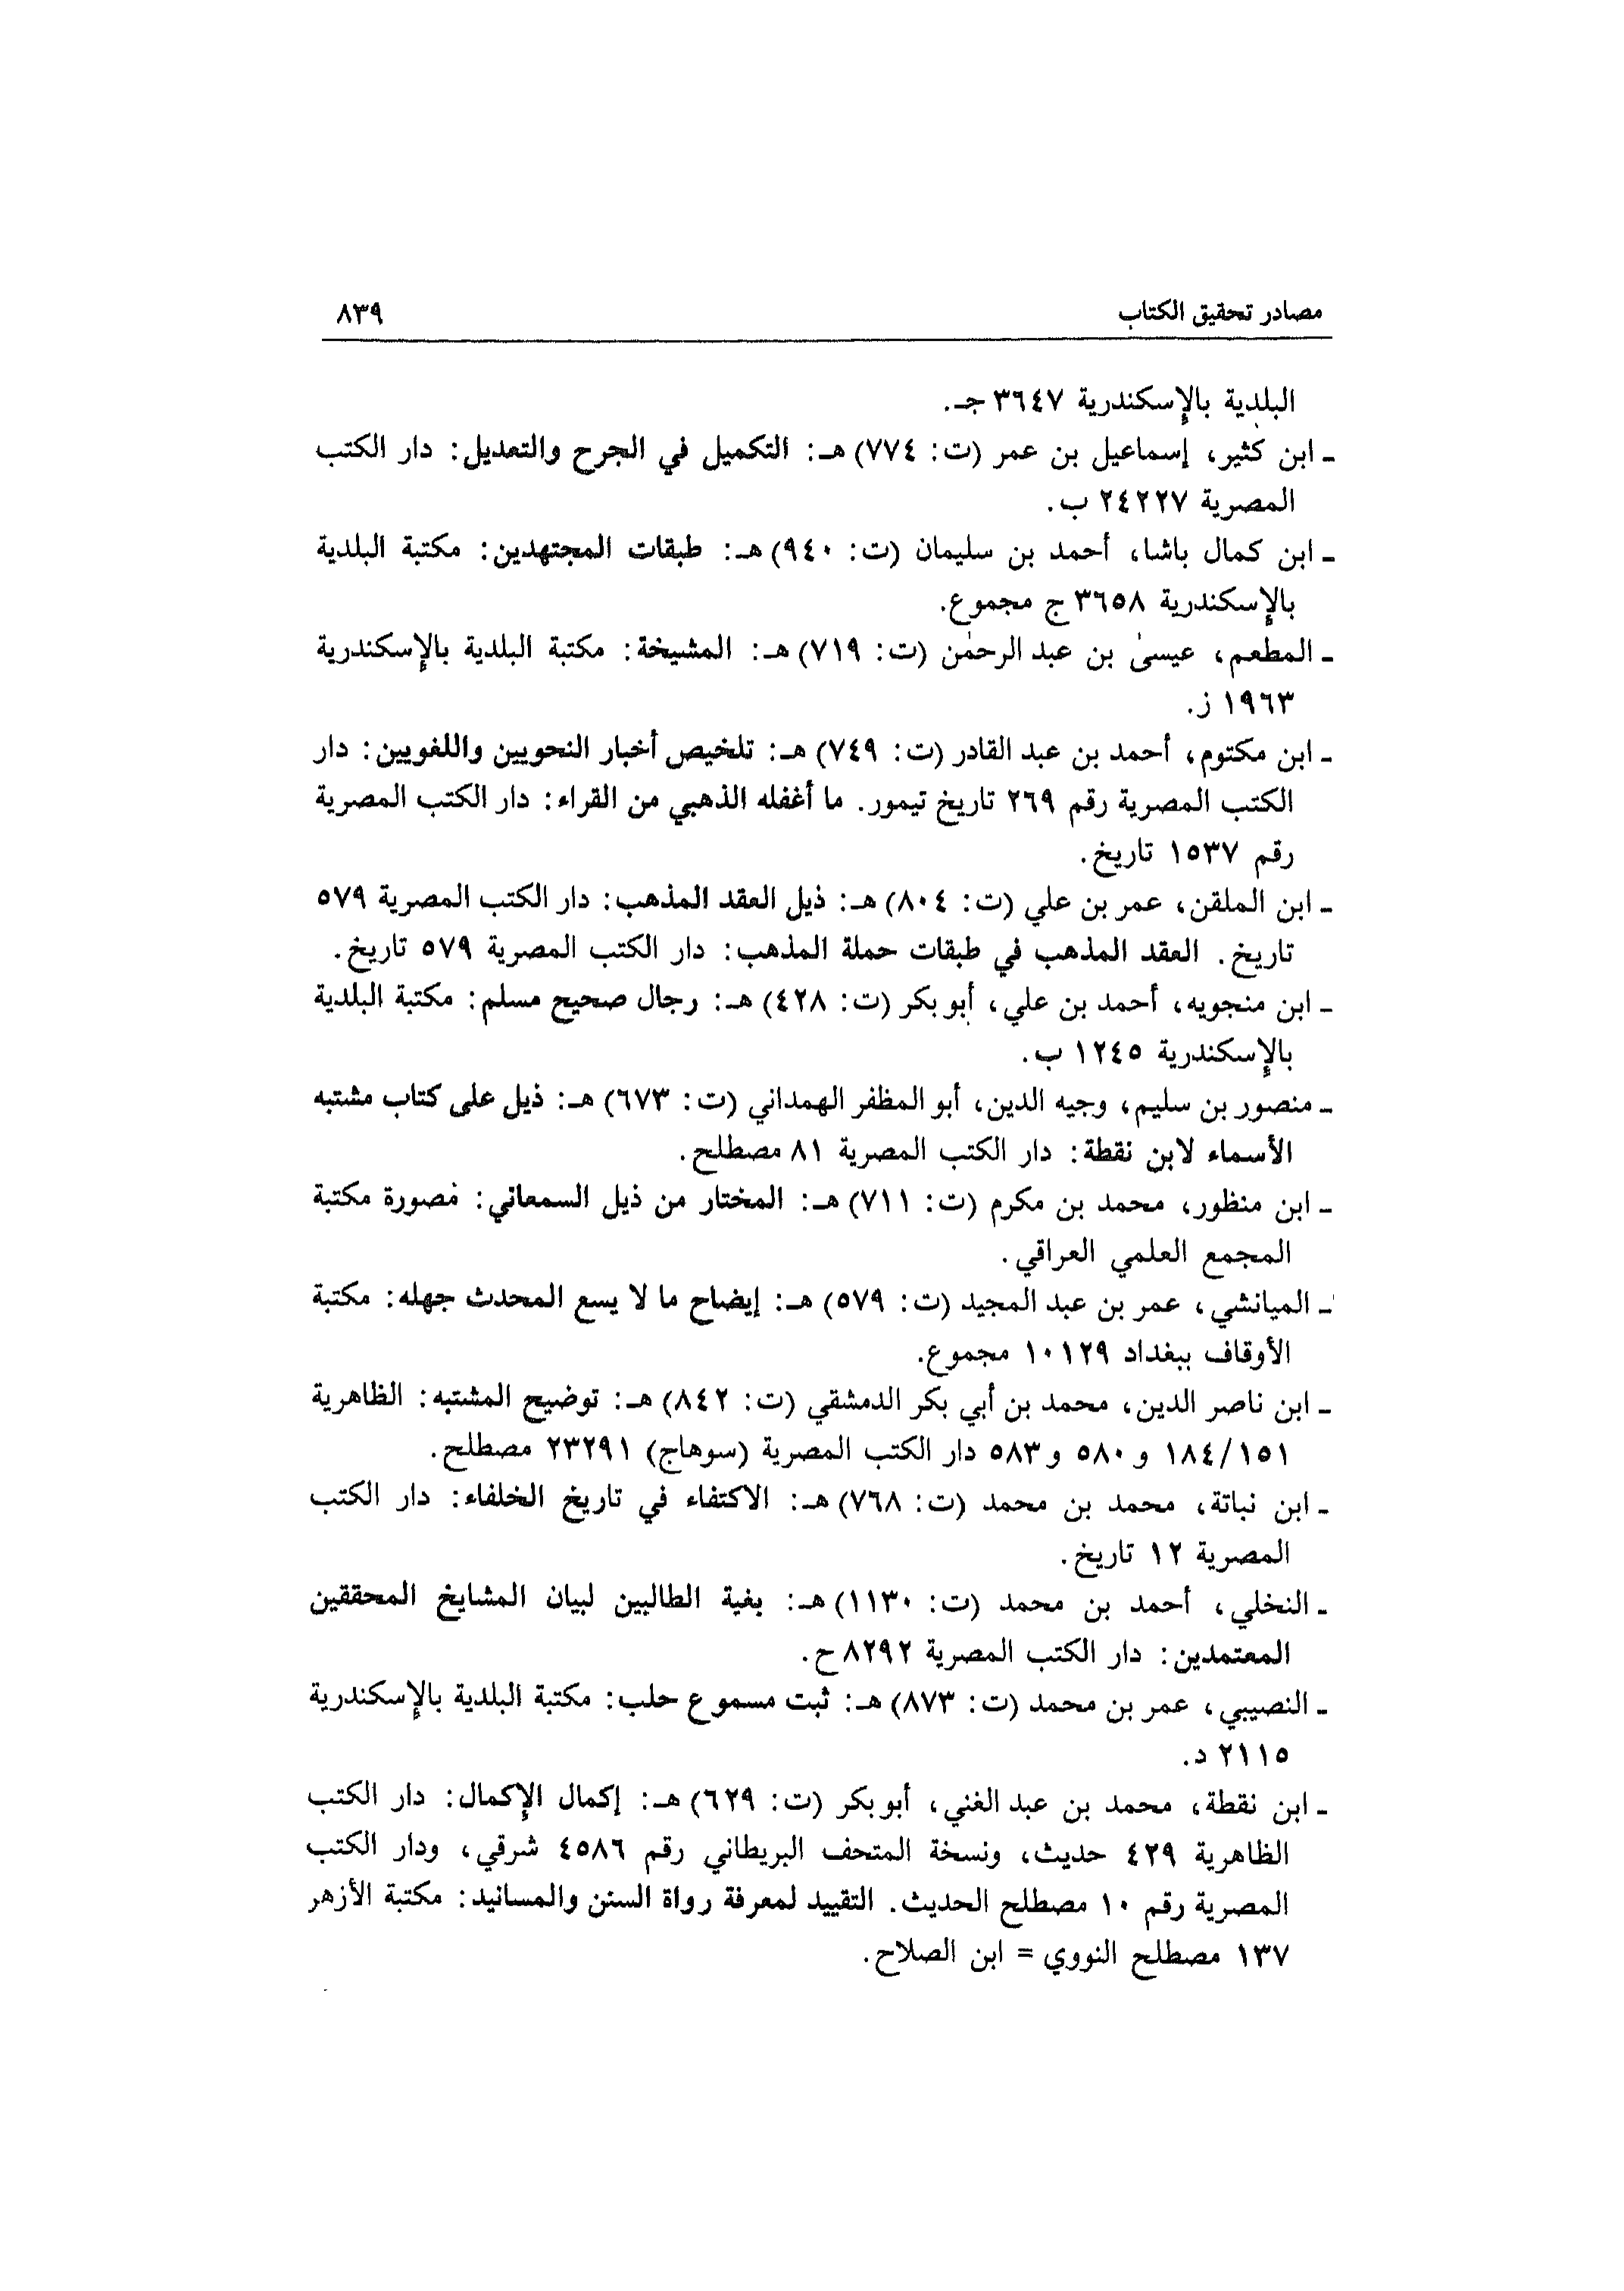 مصادر تحقيق الكتاب ٨٣٩
البلدية بالإسكندرية ٣٦٤٧ جـ.
ـ ابن كثير، إسماعيل بن عمر (ت: ٧٧٤) هـ: التكميل في الجرح والتعديل: دار الكتب
المصرية ٢٤٢٢٧ ب.
ـ ابن كمال باشا، أحمد بن سليمان (ت: ٩٤٠) هـ: طبقات المجتهدين: مكتبة البلدية
بالإسكندرية ٣٦٥٨ ج مجموع.
ـ المطعم، عيسىٰ بن عبد الرحمٰن (ت: ٧١٩) هـ: المشيخة: مكتبة البلدية بالإسكندرية
١٩٦٣ ز.
ـ ابن مكتوم، أحمد بن عبد القادر (ت: ٧٤٩) هـ: تلخيص أخبار النحويين واللغويين: دار
الكتب المصرية رقم ٢٦٩ تاريخ تيمور. ما أغفله الذهبي من القراء: دار الكتب المصرية
رقم ١٥٣٧ تاريخ.
ـ ابن الملقن، عمر بن علي (ت: ٨٠٤) هـ: ذيل العقد المذهب: دار الكتب المصرية ٥٧٩
تاريخ. العقد المذهب في طبقات حملة المذهب: دار الكتب المصرية ٥٧٩ تاريخ.
ـ ابن منجويه، أحمد بن علي، أبو بكر (ت: ٤٢٨) هـ: رجال صحيح مسلم: مكتبة البلدية
بالإسكندرية ١٢٤٥ ب.
ـ منصور بن سليم، وجيه الدين، أبو المظفر الهمداني (ت: ٦٧٣) هـ: ذيل على كتاب مشتبه
الأسماء لابن نقطة: دار الكتب المصرية ٨١ مصطلح.
ـ ابن منظور، محمد بن مكرم (ت: ٧١١) هـ: المختار من ذيل السمعاني: مصورة مكتبة
المجمع العلمي العراقي.
ـ الميانشي، عمر بن عبد المجيد (ت: ٥٧٩) هـ: إيضاح ما لا يسع المحدث جهله: مكتبة
الأوقاف ببغداد ١٠١٢٩ مجموع.
ـ ابن ناصر الدين، محمد بن أبي بكر الدمشقي (ت: ٨٤٢) هـ: توضيح المشتبه: الظاهرية
١٨٤/١٥١ و ٥٨٠ و ٥٨٣ دار الكتب المصرية (سوهاج) ٢٣٢٩١ مصطلح.
ـ ابن نباتة، محمد بن محمد (ت: ٧٦٨) هـ: الاكتفاء في تاريخ الخلفاء: دار الكتب
المصرية ١٢ تاريخ.
ـ النخلي، أحمد بن محمد (ت: ١١٣٠) هـ: بغية الطالبين لبيان المشايخ المحققين
المعتمدين: دار الكتب المصرية ٨٢٩٢ ح.
ـ النصيبي، عمر بن محمد (ت: ٨٧٣) هـ: ثبت مسموع حلب: مكتبة البلدية بالإسكندرية
٢١١٥ د.
ـ ابن نقطة، محمد بن عبد الغني، أبو بكر (ت: ٦٢٩) هـ: إكمال الإكمال: دار الكتب
الظاهرية ٤٢٩ حديث، ونسخة المتحف البريطاني رقم ٤٥٨٦ شرقي، ودار الكتب
المصرية رقم ١٠ مصطلح الحديث. التقييد لمعرفة رواة السنن والمسانيد: مكتبة الأزهر
١٣٧ مصطلح النووي = ابن الصلاح.